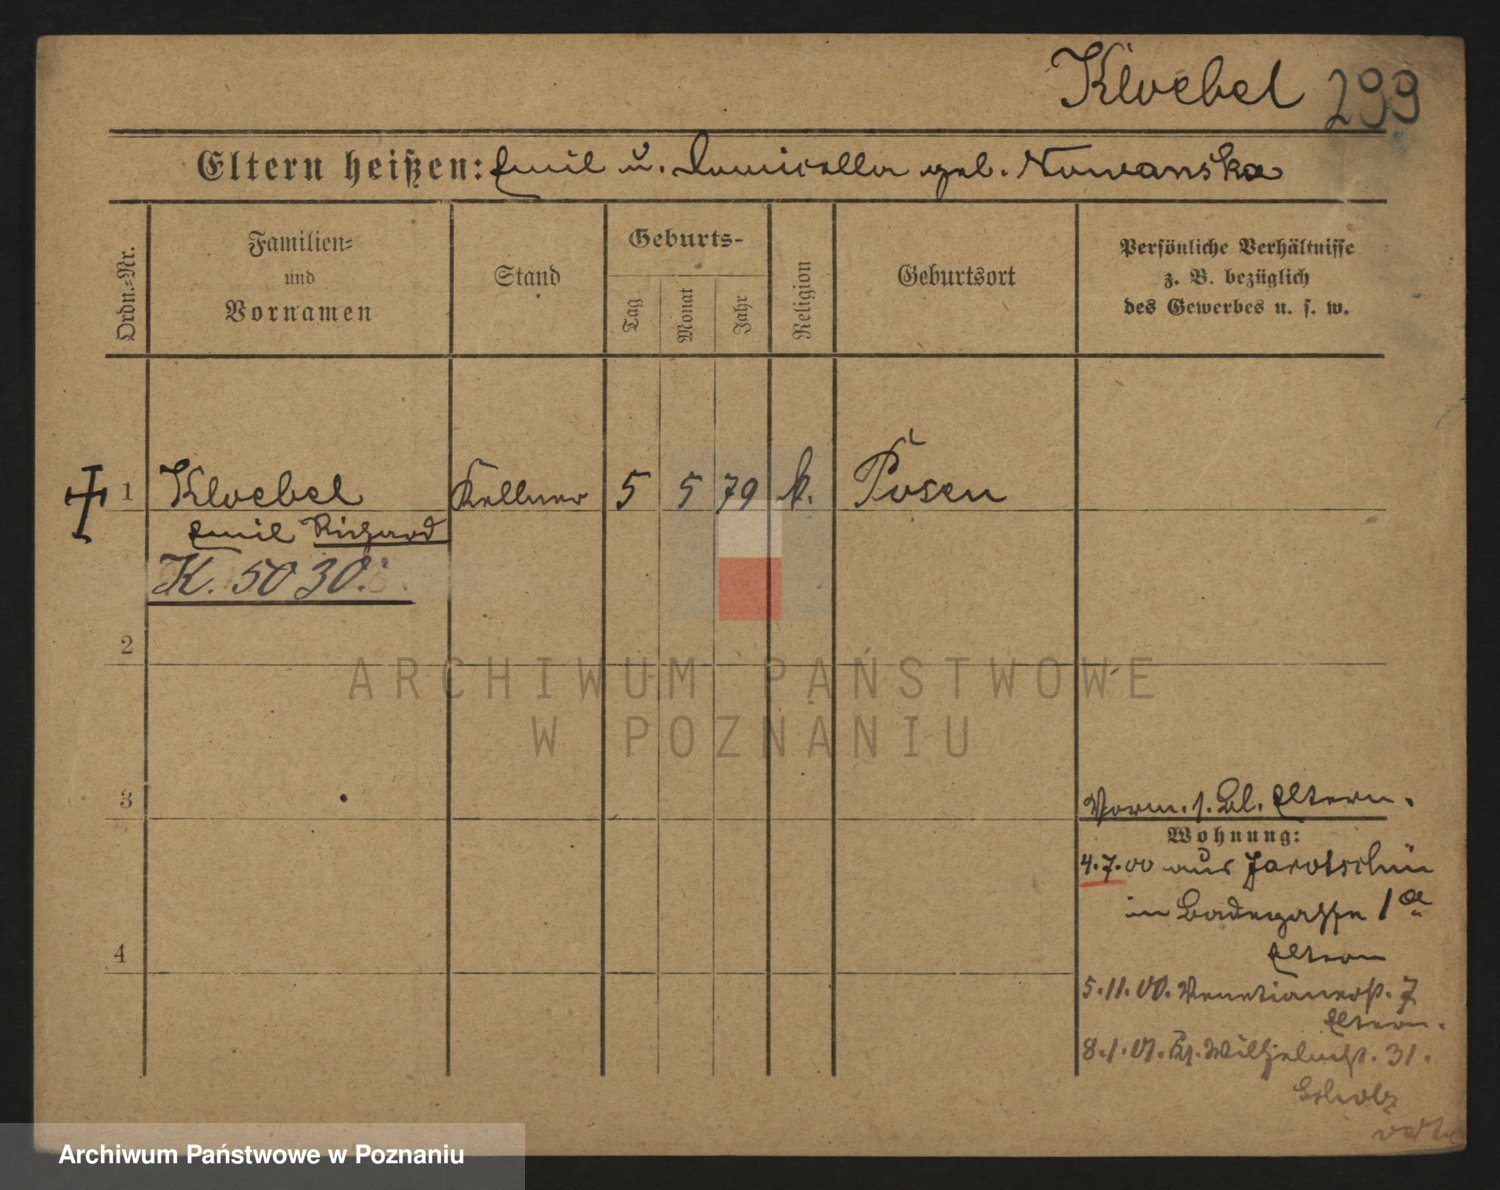 Kloebel 299
Eltern heißen: Emil u. Domicella geb. Nowanska
Ordn.-Nr.
Familien-
und
Vornamen
Stand
Geburts-
Tag
Monat
Jahr
Religion
Geburtsort
Persönliche Verhältnisse
z. B. bezüglich
des Gewerbes u. s. w.
1 Kloebel Kellner 5 5 79 k. Posen
Emil Richard
K. 5030.
2
ARCHIWUM PAŃSTWOWE
W POZNANIU
3
Vorm. s. Bl. Eltern.
Wohnung:
4.7.00 aus Jarotschin
in Badegasse 1a
4
Eltern
5.11.00. Venetianerst. 7
Eltern.
8.1.01. Kl. Wilhelmst. 31.
Scholz
Archiwum Państwowe w Poznaniu